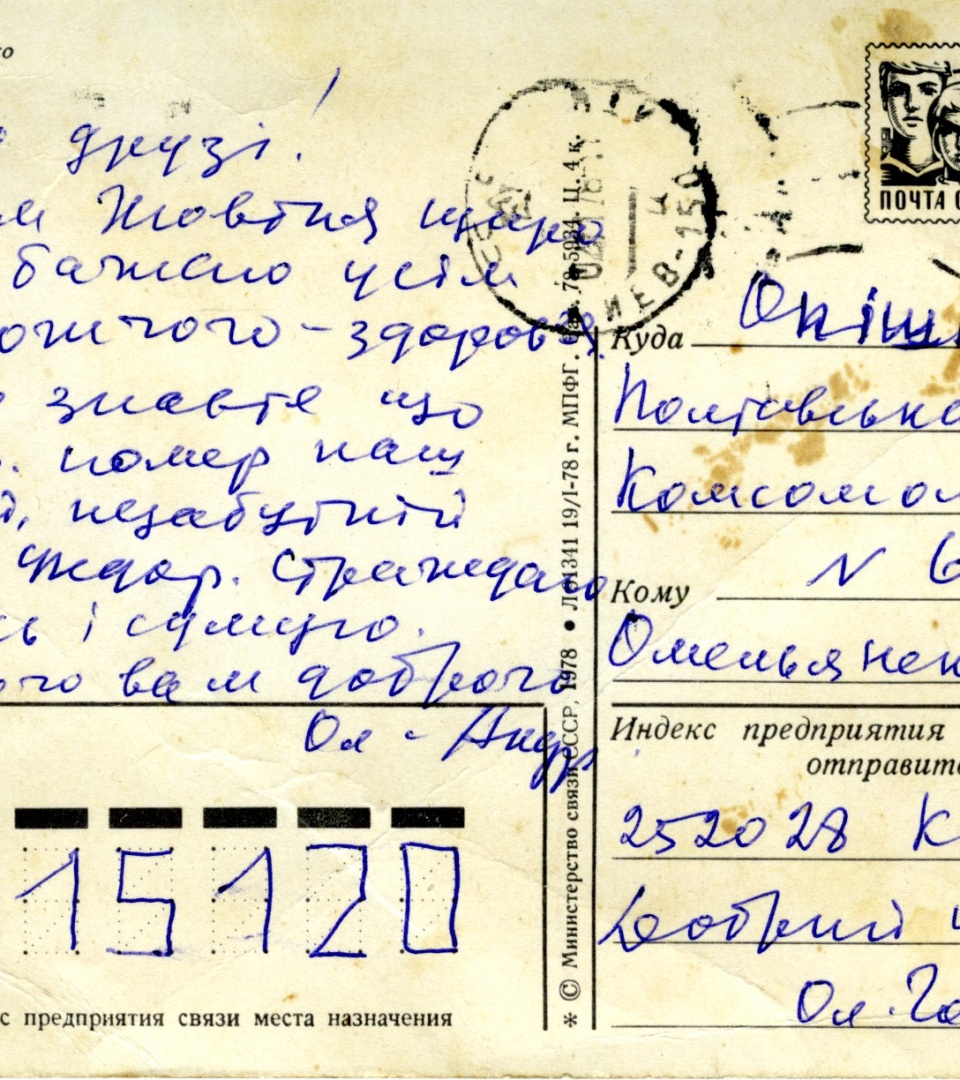 друзі!
Жовтня щиро
бажаю усім
здоров'я.
знаєте що
помер наш
незабутній
Ждар. Страждаю
і сумую.
вам доброго
Ол - Андр
15120
с предприятия связи места назначения
* © Министерство связи СССР, 1978 • Ло 1341 19/I-78 г. МПФГ. Зак. 78-5934 Ц. 4 к.
ПОЧТА С
КИЕВ-150
Куда Опішн
Полтавська
Комсомол
Кому N 6
Омельянен
Индекс предприятия
отправите
252028 К
Добрий
Ол. Го